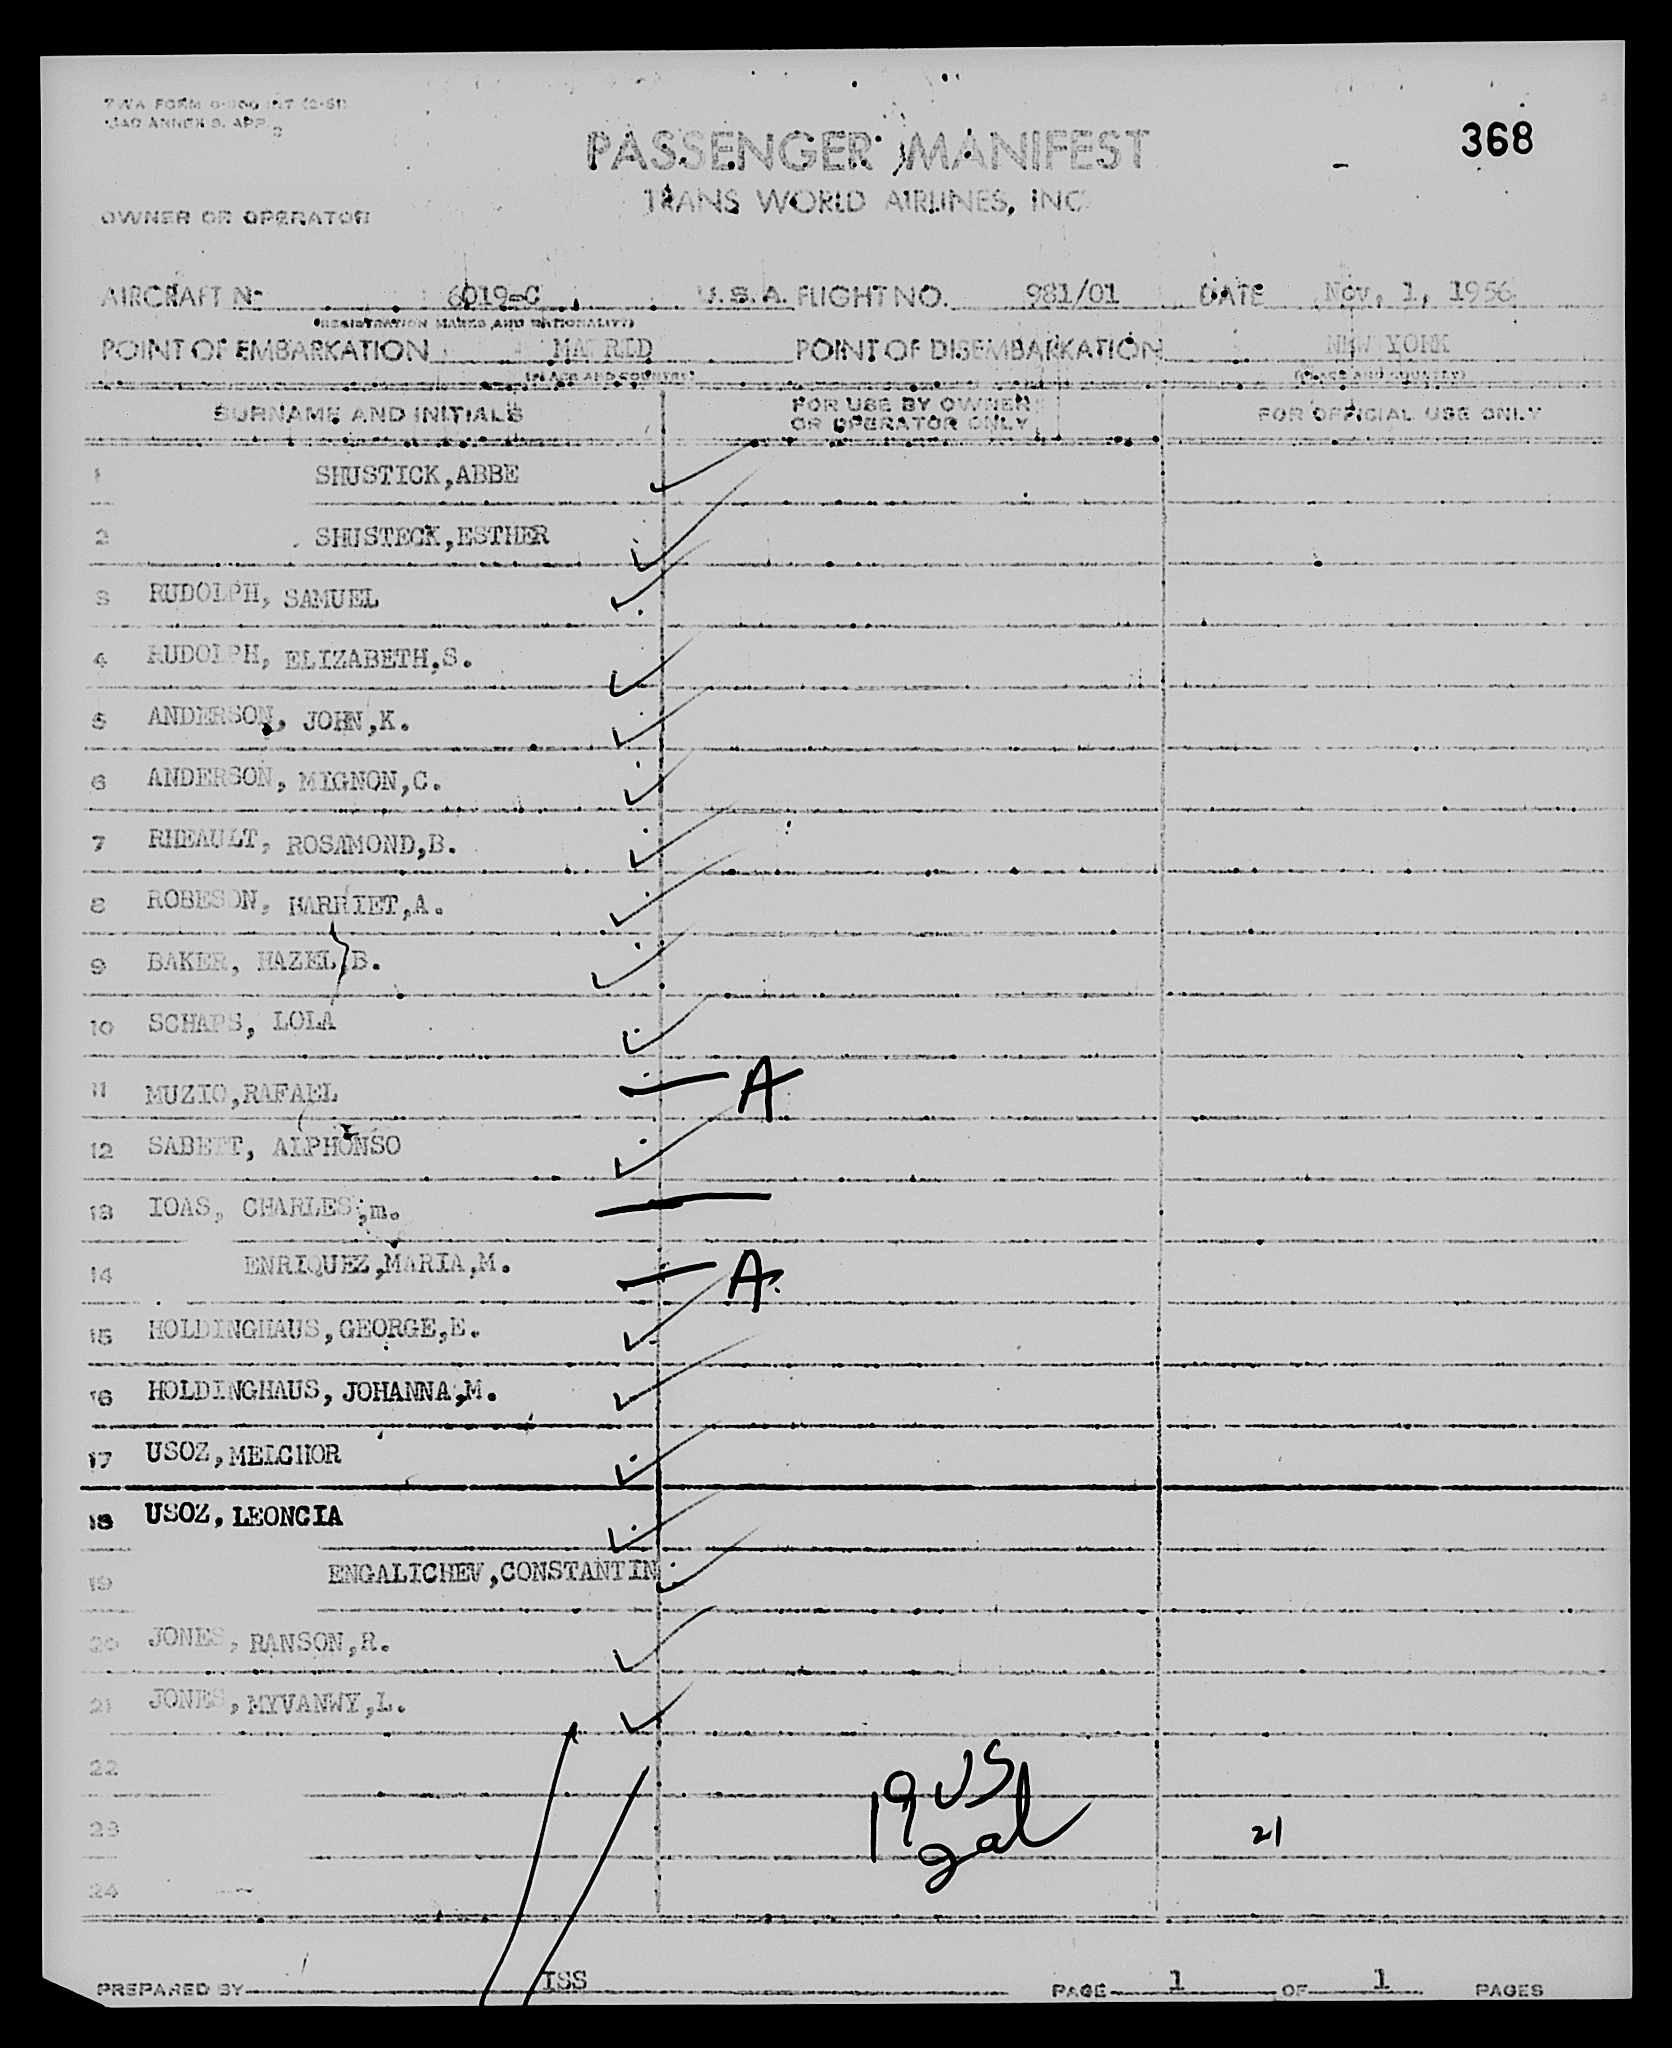 TWA FORM
ICAO ANNEX 9, APP. 2
PASSENGER MANIFEST
368
TRANS WORLD AIRLINES, INC
OWNER OR OPERATOR
AIRCRAFT N- 6019=C U.S.A. FLIGHT NO. 981/01 DATE Nov. 1, 1956
(REGISTRATION MARKS AND NATIONALITY)
POINT OF EMBARKATION MADRID POINT OF DISEMBARKATION NEW YORK
(PLACE AND COUNTRY) (PLACE AND COUNTRY)
SURNAME AND INITIALS FOR USE BY OWNER OR OPERATOR ONLY FOR OFFICIAL USE ONLY
1 SHUSTICK,ABBE
2 SHUSTECK,ESTHER
3 RUDOLPH, SAMUEL
4 RUDOLPH, ELIZABETH,S.
5 ANDERSON, JOHN,K.
6 ANDERSON, MIGNON,C.
7 RHEAULT, ROSAMOND,B.
8 ROBESON, HARRIET,A.
9 BAKER, HAZEL,B.
10 SCHAPS, LOLA
11 MUZIO,RAFAEL A
12 SABETT, ALPHONSO
13 IOAS, CHARLES,m.
14 ENRIQUEZ,MARIA,M. A.
15 HOLDINGHAUS,GEORGE,E.
16 HOLDINGHAUS,JOHANNA,M.
17 USOZ,MELCHOR
18 USOZ,LEONCIA
19 ENGALICHEV,CONSTANTIN
20 JONES, RANSON,R.
21 JONES,MYVANWY,L.
22
19 US
23
2 al
21
24
PREPARED BY ISS PAGE 1 OF 1 PAGES